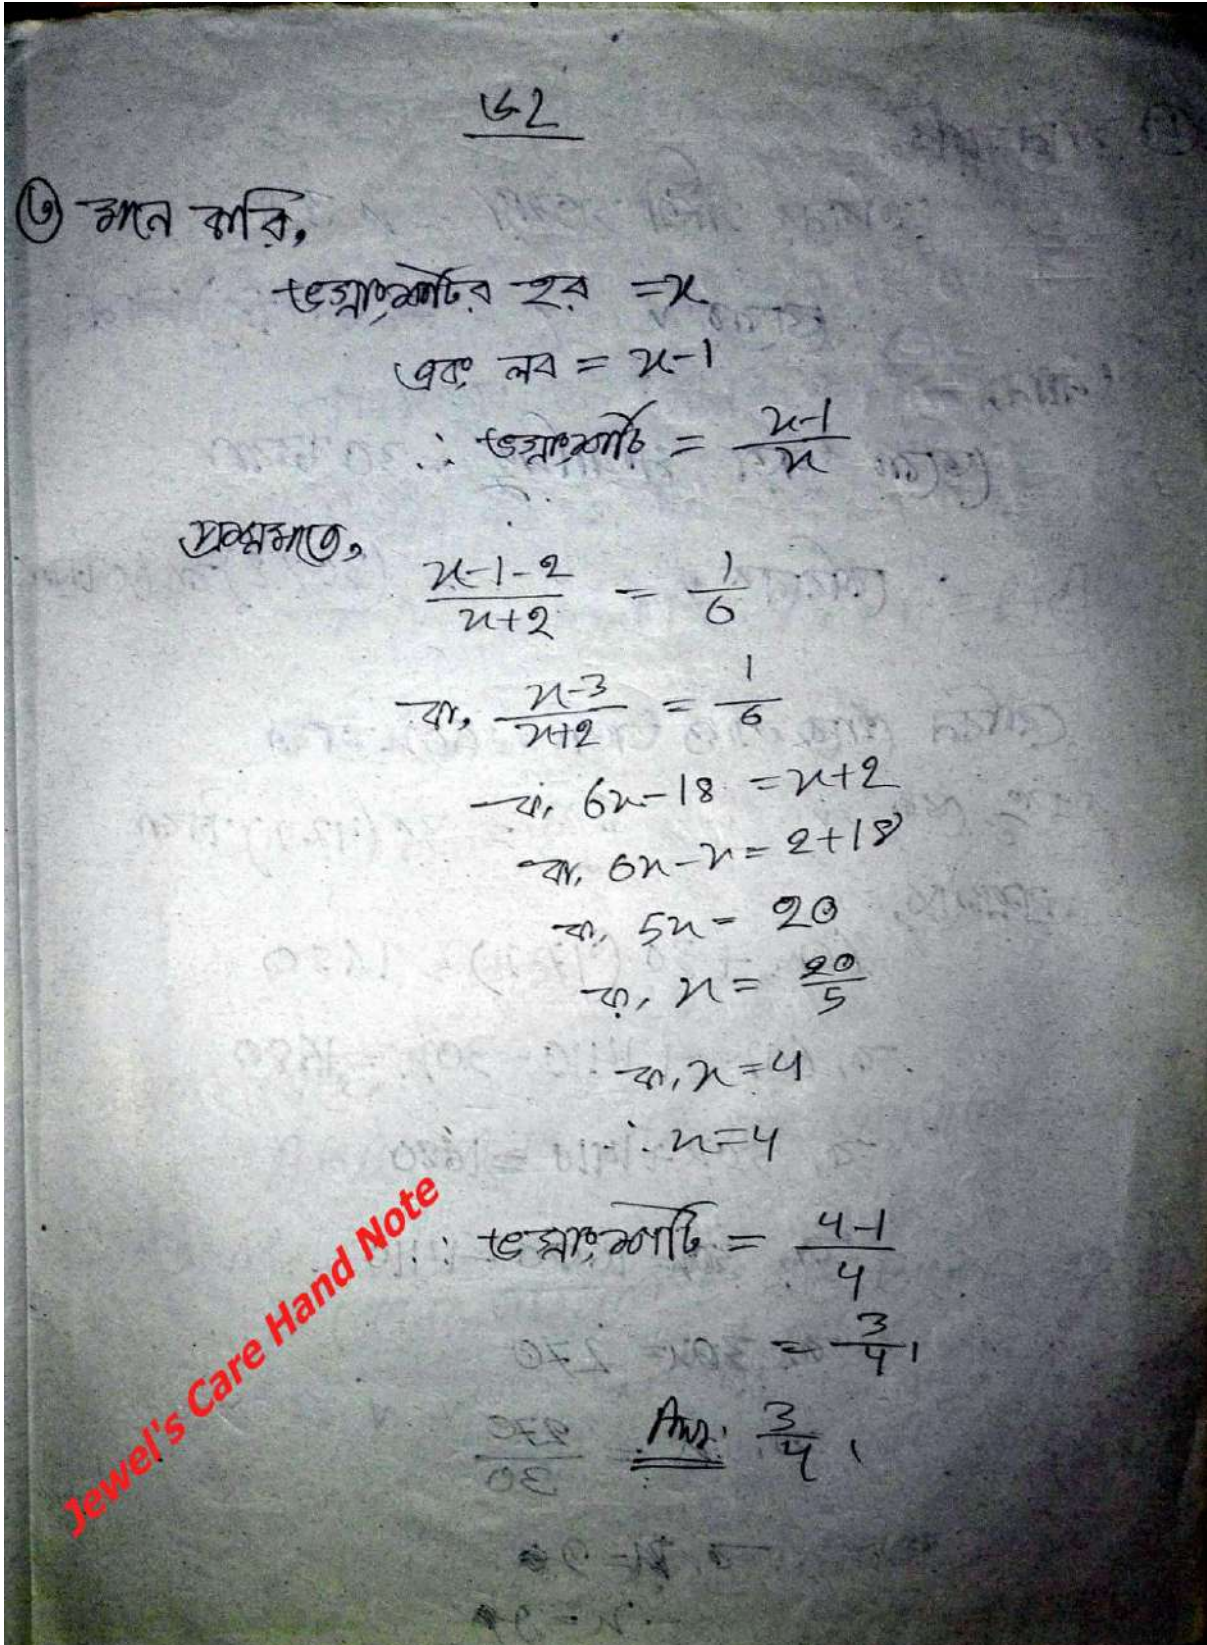 ৬2
৩ মনে করি,
ভগ্নাংশটির হর = x
এবং লব = x-1
∴ ভগ্নাংশটি = x-1/x
প্রশ্নমতে,
x-1-2/x+2 = 1/6
বা, x-3/x+2 = 1/6
বা, 6x-18 = x+2
বা, 6x-x = 2+18
বা, 5x = 20
বা, x = 20/5
বা, x = 4
∴ x = 4
∴ ভগ্নাংশটি = 4-1/4
= 3/4।
Ans: 3/4।
Jewel's Care Hand Note